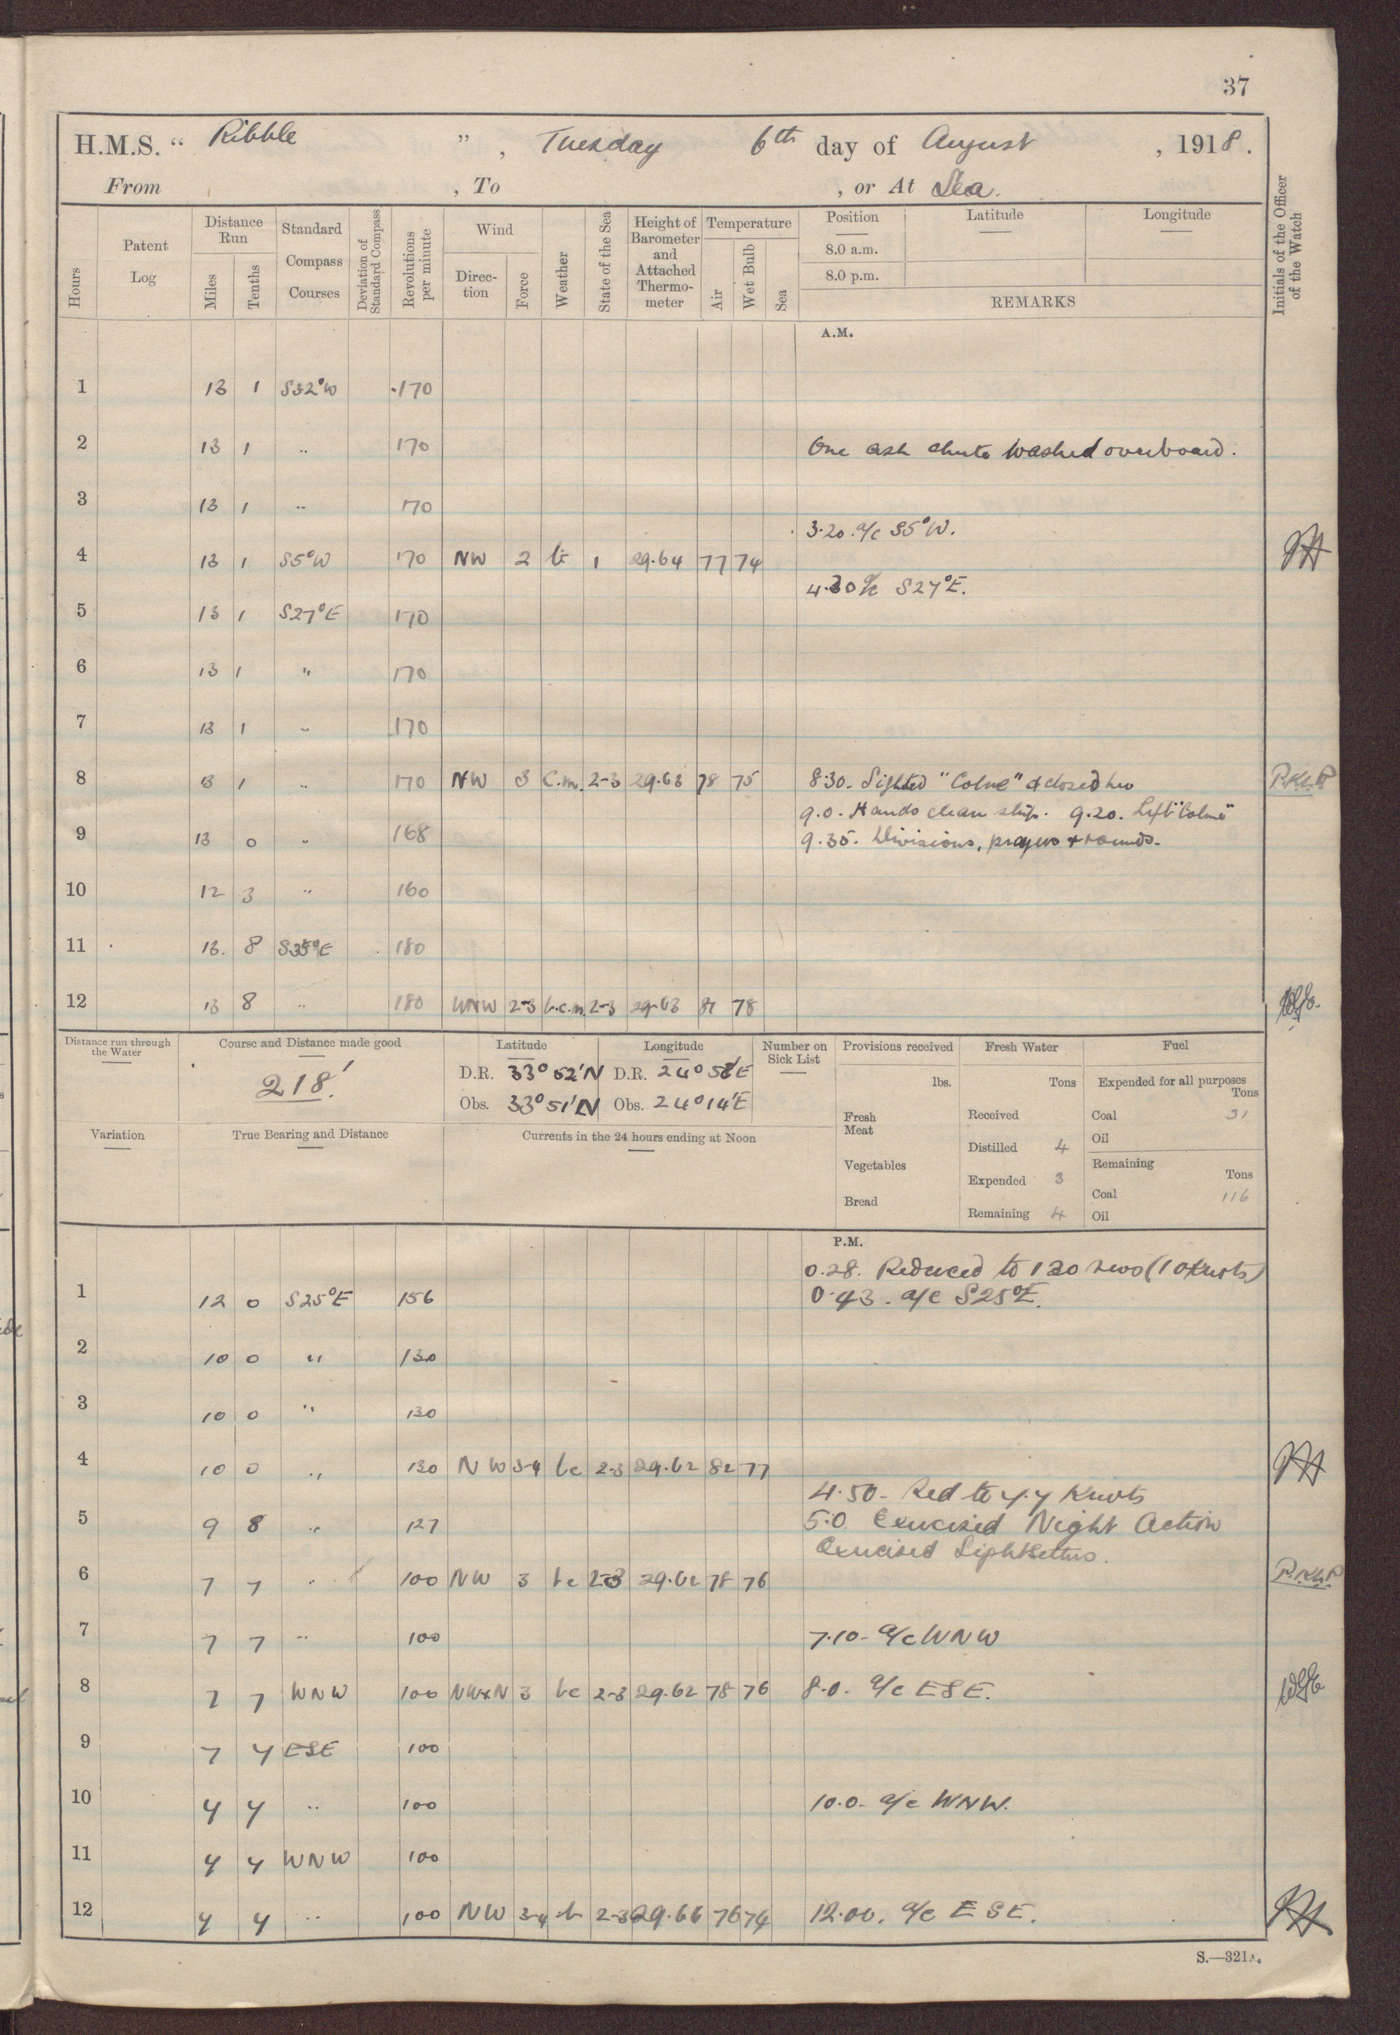 37
H.M.S. “ Ribble ” , Tuesday 6th day of August , 1918.
From , To , or At Sea.
Hours
Patent Log
Distance Run
Miles
Tenths
Standard Compass Courses
Deviation of Standard Compass
Revolutions per minute
Wind
Direction
Force
Weather
State of the Sea
Height of Barometer and Attached Thermometer
Temperature
Air
Wet Bulb
Sea
Position Latitude Longitude
8.0 a.m.
8.0 p.m.
REMARKS
Initials of the Officer of the Watch
A.M.
1 13 1 S32°W 170
2 13 1 " 170 One ash chute washed overboard.
3 13 1 " 170
3.20. a/c S5°W.
4 13 1 S5°W 170 NW 2 bc 1 29.64 77 74
4.30 a/c S27°E.
5 13 1 S27°E 170
6 13 1 " 170
7 13 1 " 170
8 13 1 " 170 NW 3 c.m. 2-3 29.63 78 75 8.30. Sighted "Colne" & closed her P.K.P
9.0. Hands clean ship. 9.20. Left "Colne"
9 13 0 " 168 9.35. Divisions, prayers & rounds.
10 12 3 " 160
11 13 8 S35°E 180
12 13 8 " 180 WNW 2-3 b.c.m 2-3 29.63 81 78
Distance run through the Water
Course and Distance made good
218'
Latitude Longitude
D.R. 33° 52'N D.R. 24° 58'E
Obs. 33° 51'N Obs. 24° 14'E
Number on Sick List
Provisions received
lbs.
Fresh Meat
Vegetables
Bread
Fresh Water
Tons
Received
Distilled 4
Expended 3
Remaining 4
Fuel
Expended for all purposes
Tons
Coal 31
Oil
Remaining
Tons
Coal 116
Oil
Variation
True Bearing and Distance
Currents in the 24 hours ending at Noon
P.M.
0.28. Reduced to 130 revs (10 knots)
1 12 0 S25°E 156 0.43. a/c S25°E.
2 10 0 " 130
3 10 0 " 130
4 10 0 " 130 NW 3-4 bc 2-3 29.62 82 77
4.50. Red to 7.7 knots
5 9 8 " 127 5.0 Exercised Night Action
Exercised Lightkettles.
6 7 7 " 100 NW 3 bc 2-3 29.62 78 76
7 7 7 " 100 7.10. a/c WNW
8 7 7 WNW 100 NWxN 3 bc 2-3 29.62 78 76 8.0. a/c ESE.
9 7 7 ESE 100
10 7 7 " 100 10.0. a/c WNW.
11 7 7 WNW 100
12 7 7 " 100 NW 3-4 b 2-3 29.66 76 74 12.00. a/c ESE.
S.—321A.